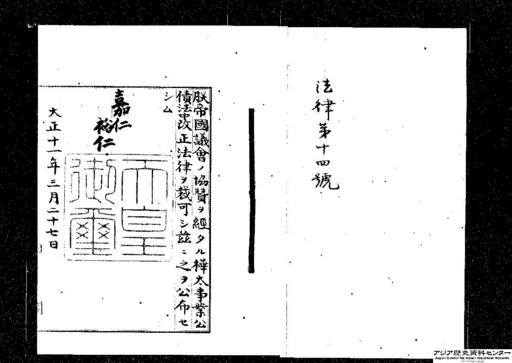 法律第十四號
朕帝國議會ノ協賛ヲ經タル樺太事業公
債法中改正法律ヲ裁可シ茲ニ之ヲ公布セ
シム
嘉仁
裕仁
天皇
御璽
大正十一年三月二十七日
アジア歴史資料センター
Japan Center for Asian Historical Records